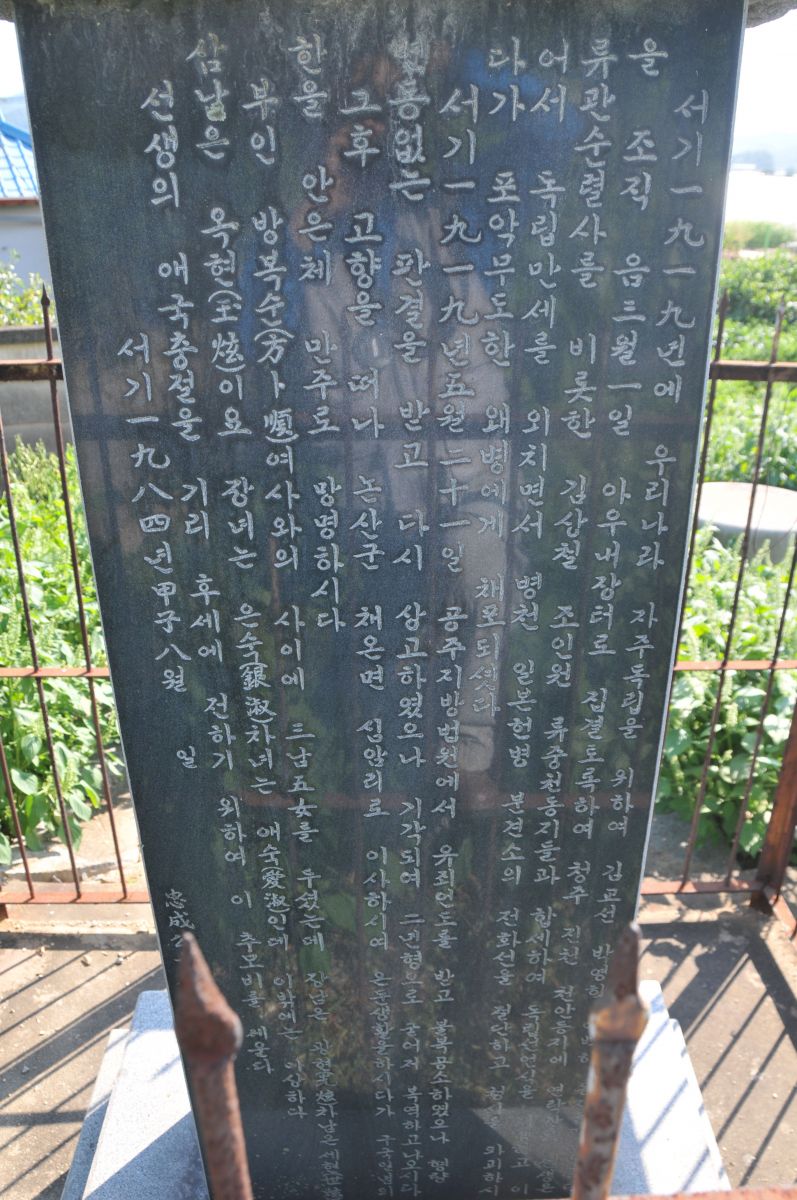 서기一九一九년에 우리나라 자주독립을 위하여 김교선 박영희
을 조직 음三월一일 아우내장터로 집결토록하여 청주 진천 천안등지에
류관순렬사를 비롯한 김상철 조인원 류중천동지들과 합세하여 독립선언식을
어서 독립만세를 외치면서 병천 일본헌병 분견소의 전화선을 절단하고
다가 포악무도한 왜병에게 채포되셋다
서기一九一九년五월二十一일 공주지방법원에서 유죄언도를 받고 불복공소하였으나
변통없는 판결을 받고 다시 상고하였으나 기각되여 二년형으로 굳어저 복역하고나오시다
그후 고향을 떠나 논산군 채운면 심암리로 이사하시여 은둔생활을하시다가
한을 안은체 만주로 망명하시다
부인 방복순(方卜順)여사와의 사이에 三남五女를 두셨는데 장남은 차남은
삼남은 옥현(玉炫)이요 장녀는 은숙(銀淑)차녀는 애숙(愛淑)인데
선생의 애국충절을 기리 후세에 전하기 위하여 이 추모비를 세운다
서기一九八四년甲子八월 일
忠成